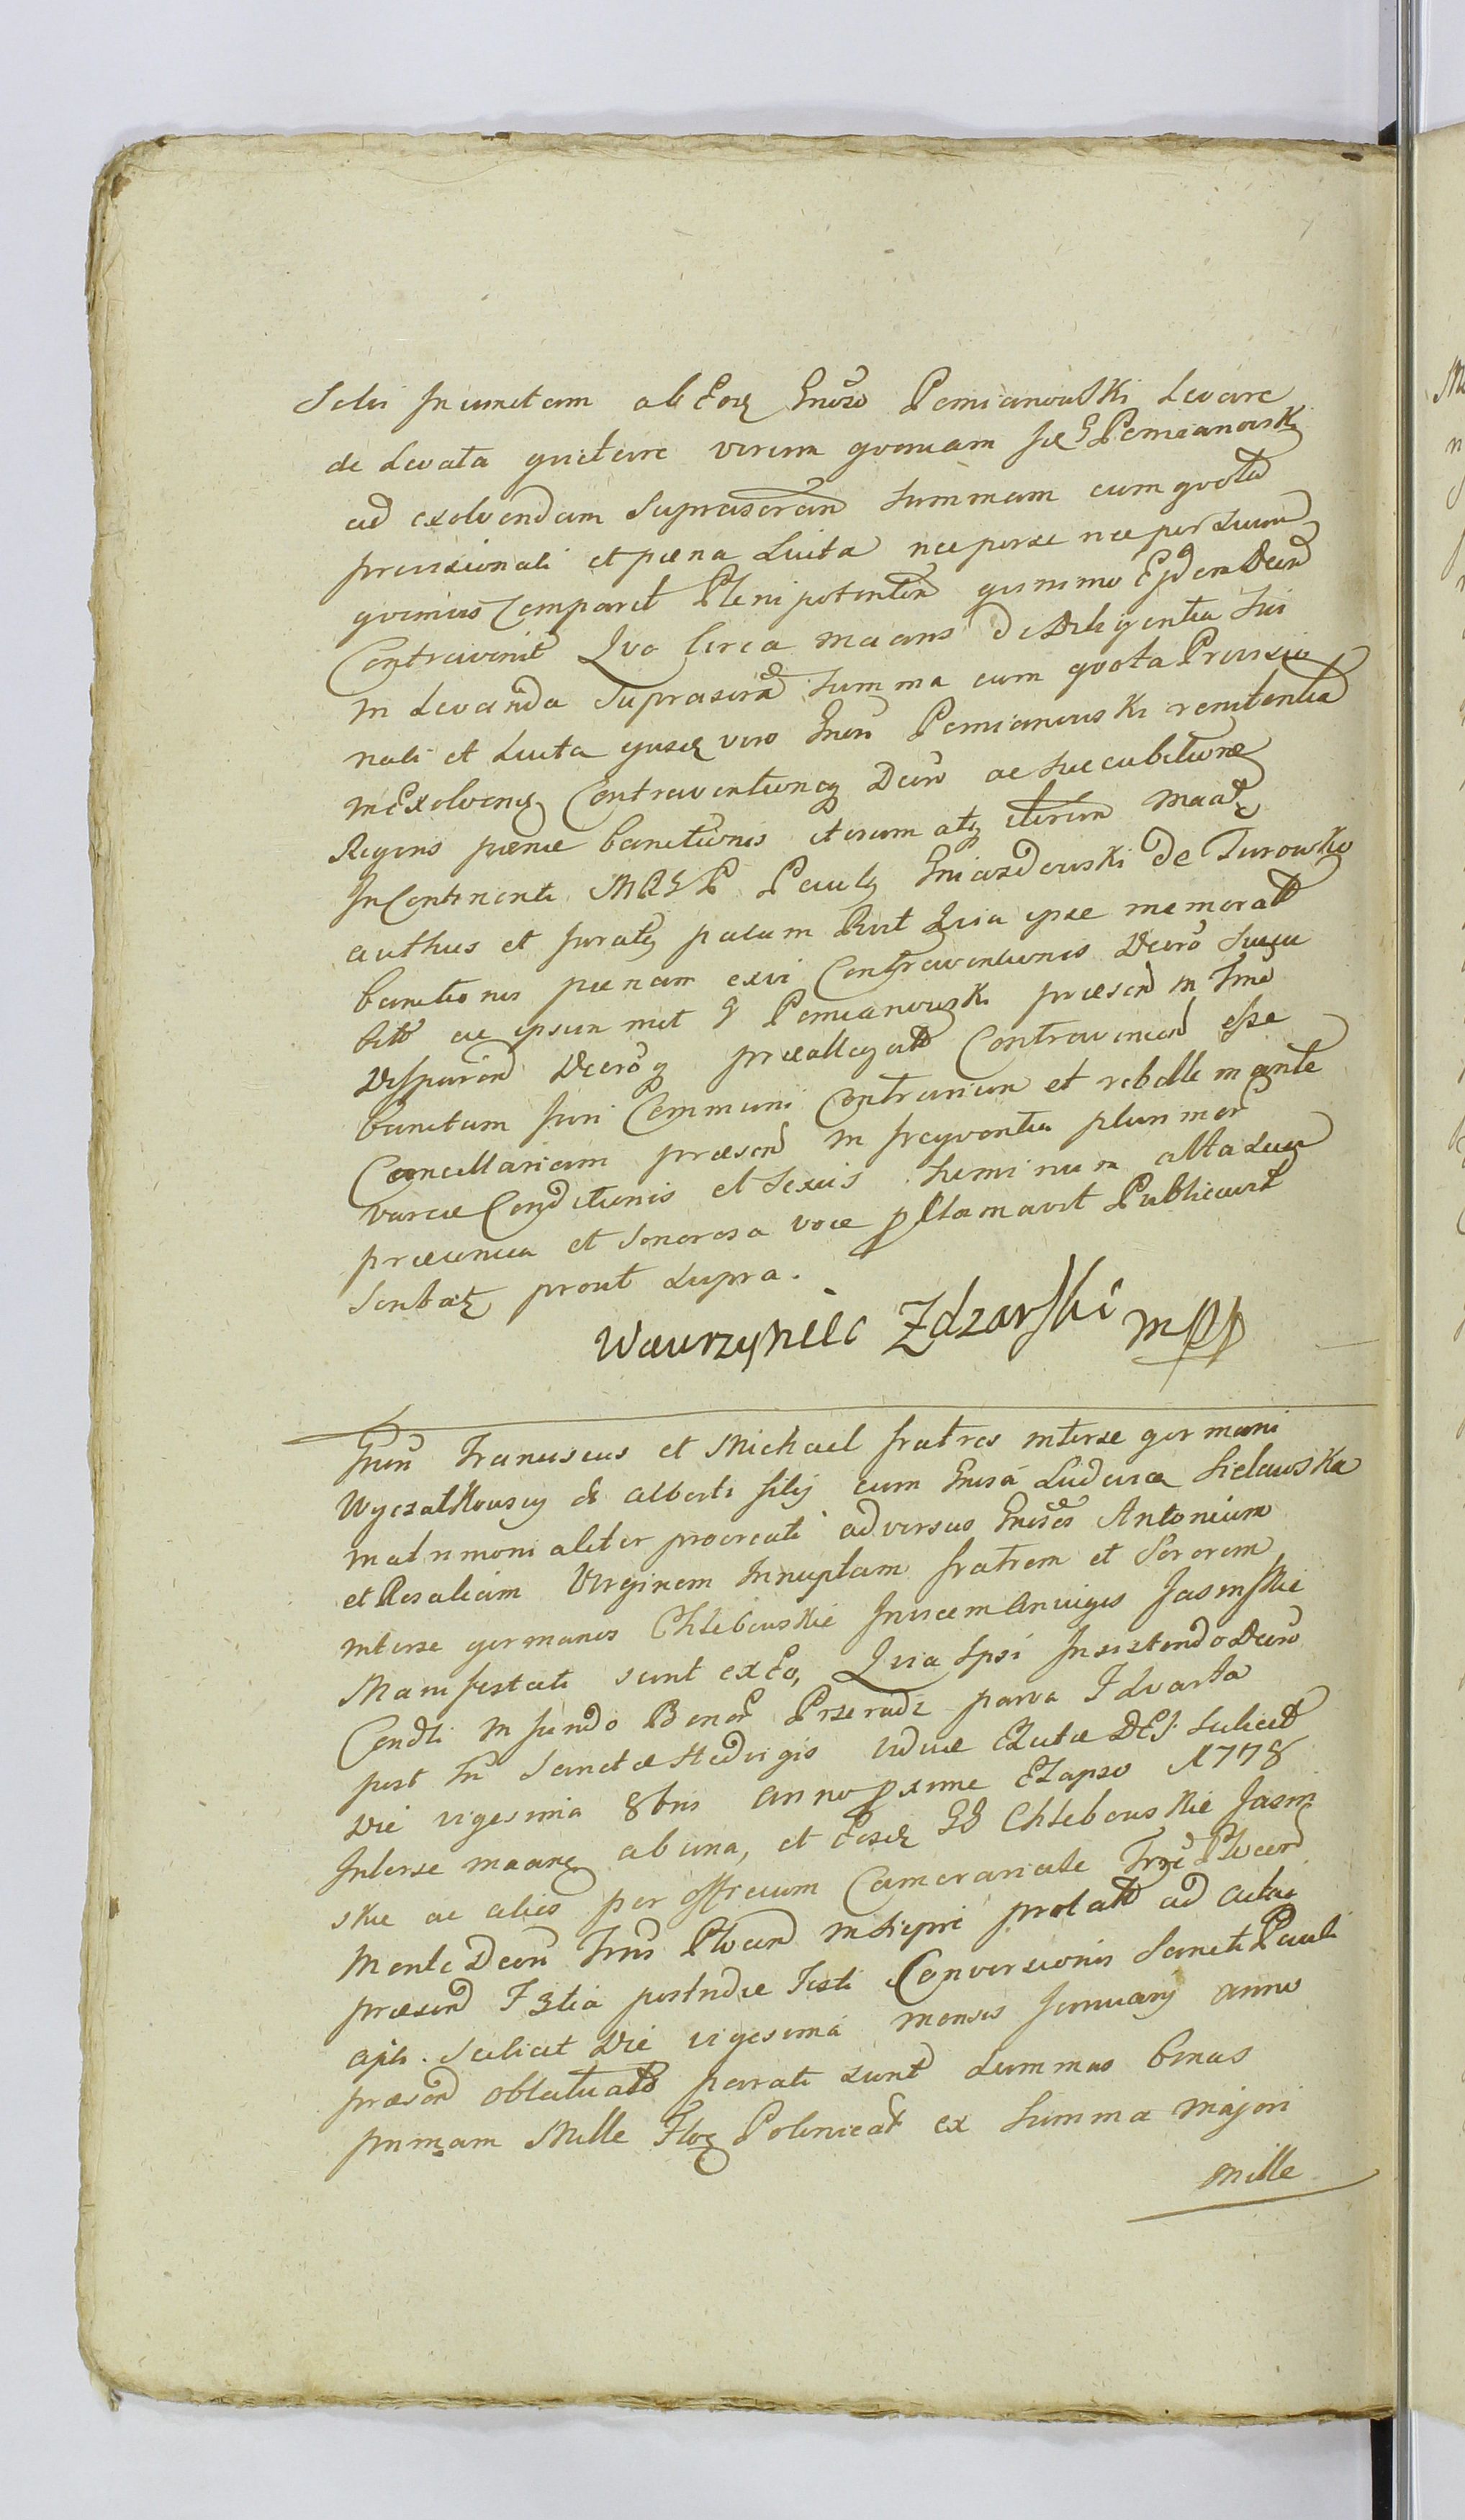 Sibi Inunctam ab Eodz Gnoso Pomianowski Levare
de Levata quietare verum quoniam Ille G Pomianowski
ad exolvendam Suprascran Summam cum quota
provisionali et pæna Luita nec per se nec per Suum
quemvis comparuit Plenipotentem quinimo Ejdem Decro
Contravenit Quo Circa maans de Diligentia Sui
in Levanda Suprascra Summa cum quota Provisio
nali et Luita ejusdz vero Gnosi Pomianowski renitentia
in Exolvendz Contraventioneqz Decro ac Succubitione
Regens pænæ banitionis iterum atqz iterum maatz
In Continenti MRGL Paulz Gniazdowski de Turowko
authus et Juratz palam Rcvit Quia ipse memorat
banitionis pænam exvi Contraventionis Decro Succu
bito ac ipsum met G Pomianowski præsen in Tmo
Disparen Decroqz præallegato Contravenien esse
banitum Juri Communi Contrarium et rebellem ante
Cancellariam præsen in freqventia plurimor
variæ Conditionis et Sexus hominum alta sua
præconica et Sonorosa voce proclamavit Publicavit
Scribatz prout Supra.
Wawrzyniec Zdzarski mpp
Gnosi Franciscus et Michael fratres inter se germani
Wyczałkowscy olim Alberti filij cum Gnosa Ludovica Sielawska
matrimonialiter procreati adversus Gnosos Antonium
et Rosaliam Virginem Innuptam fratrem et Sororem
inter se germanos Chlebowskie Invicem Conjuges Jasinskie
Manifestati sunt ex Eo, Quia Ipsi Insistendo Decro
Condli in fundo Bonor Przeradz parva Fdvarta
post Fm Sanctæ Hedvigis viduæ Electæ DEJ. Scilicet
Die vigesima 8bris anno proxime Elapso 1778
Inter se maang ab una, et Eosdz GG Chlebowskie Jasin
skie ac alios per officium Camerariale Træ Plocen
Mente Decri Trns Plocen in Siepre prolat ad acta
præsen F 3tia postridie Festi Conversionis Sancti Pauli
Apli. Scilicet Die vigesima mensis Januarij anno
præsen oblatuato parati sunt Summas binas
primam Mille Floz Polonical ex Summa majori
mille